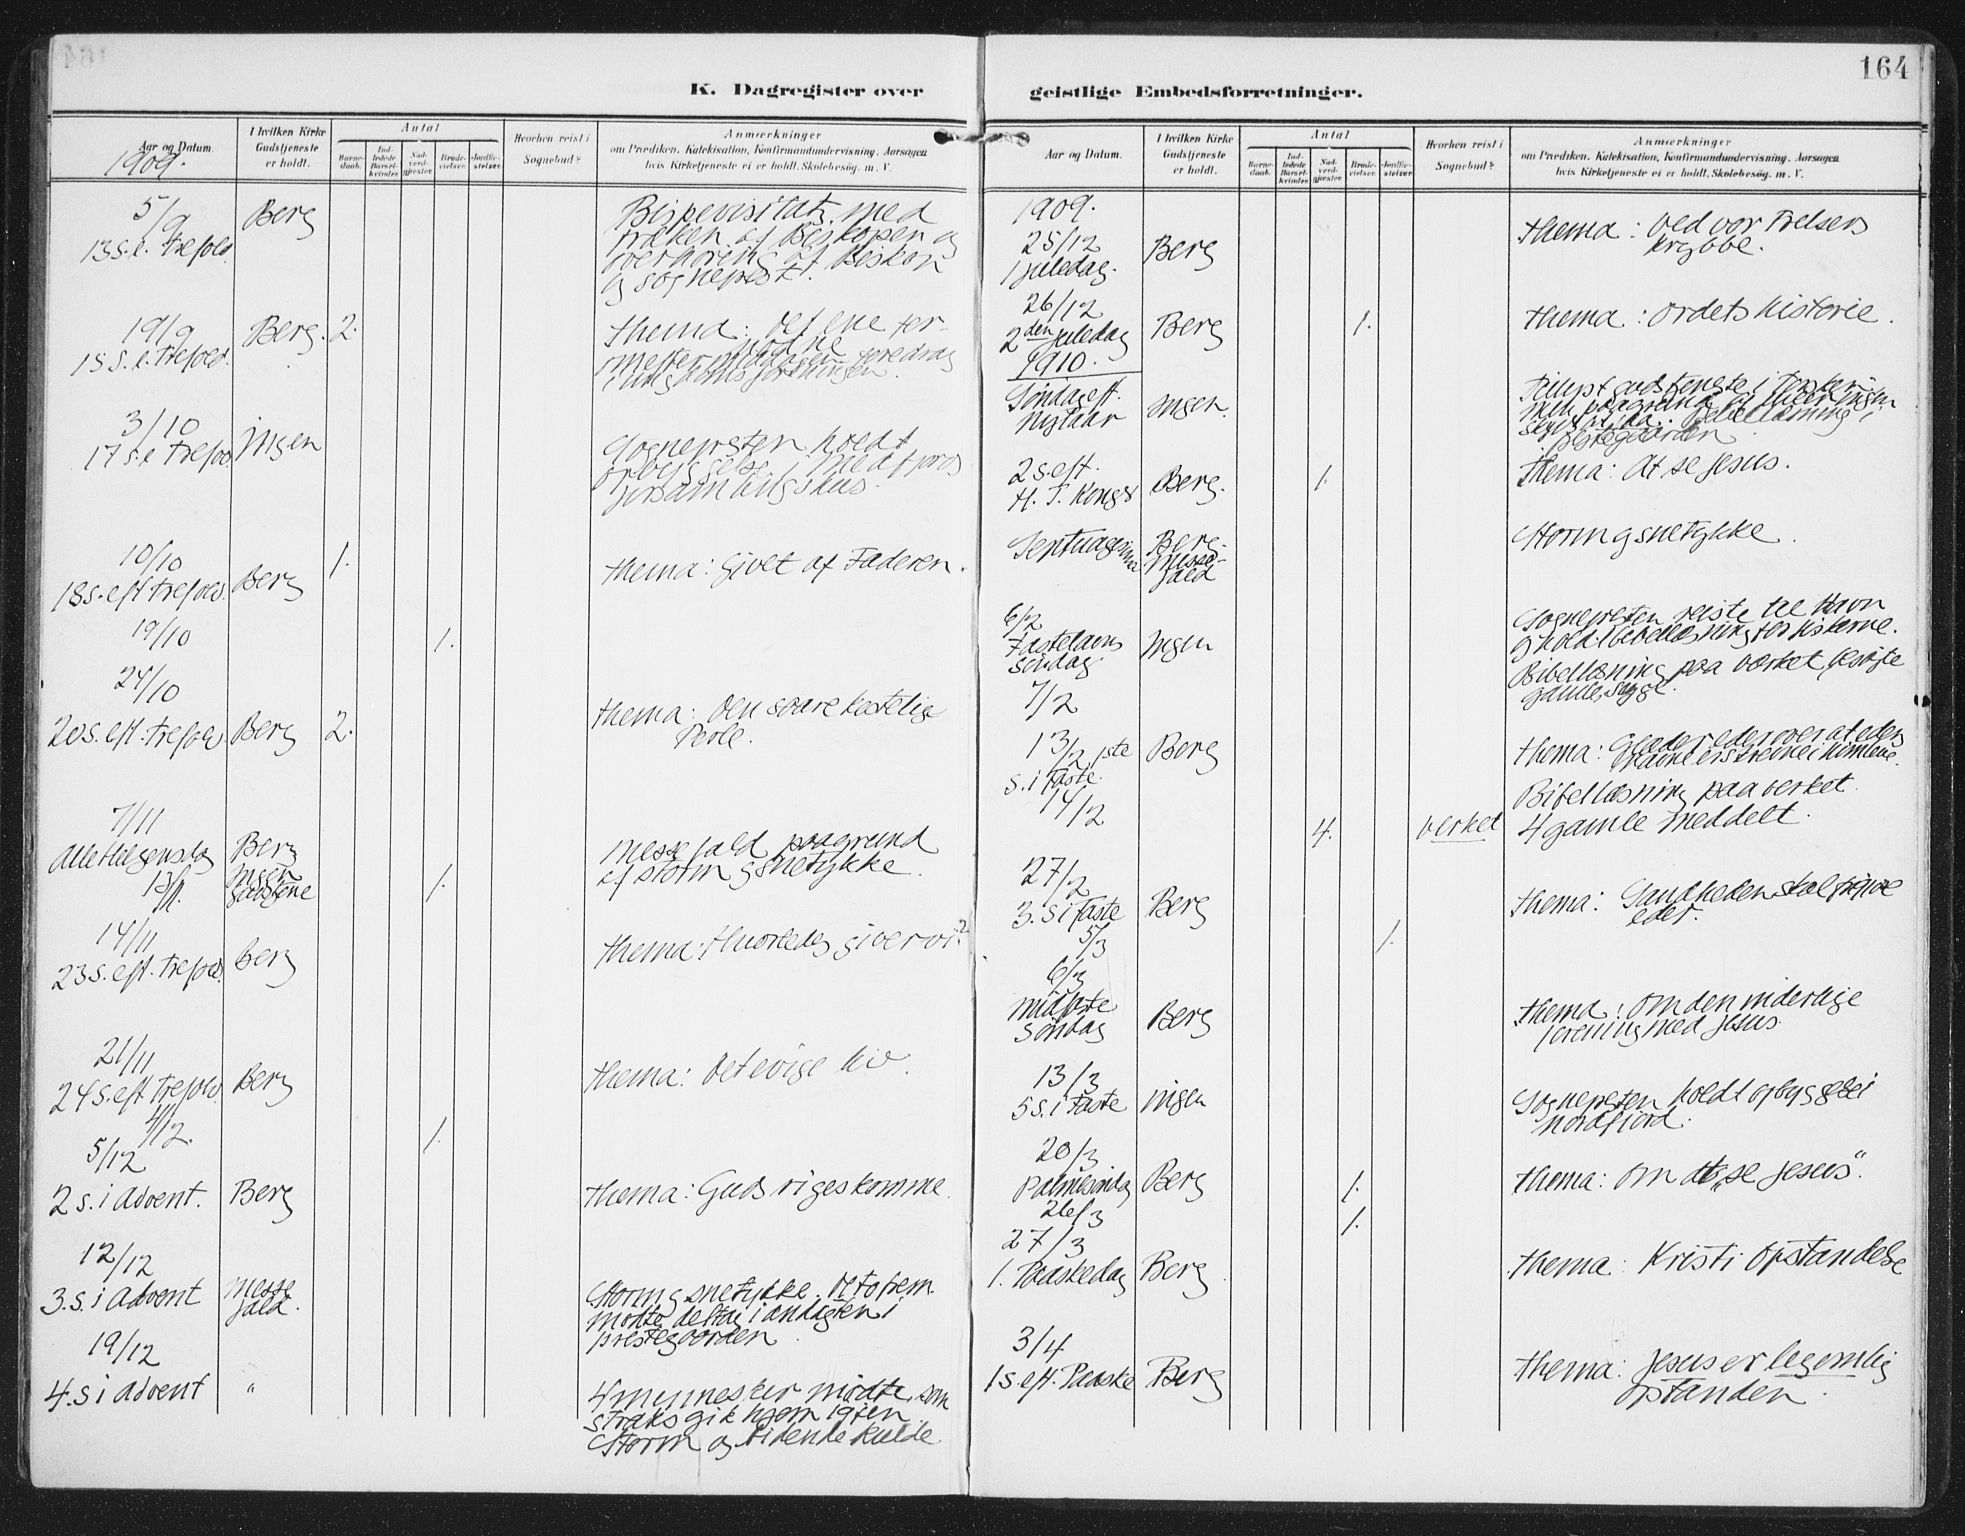 K. Dagregister over
Aar og Datum.
I hvilken Kirke Gudstjeneste er holdt.
Antal
Barnedaab.
Indledede Barselkvinder.
Nadverdgjæster.
Brudevielser.
Jordfæstelser.
Hvorhen reist i Sognebud?
Anmærkninger
om Prædiken, Katekisation, Konfirmandundervisning, Aarsagen
hvis Kirketjeneste ei er holdt, Skolebesøg, m. V.
1909.
5/9 Berg Bispevisitats med
13 s. e. Trefold. præken af Biskopen og
overhøring af Biskop
og sogneprest.
19/9 Berg. 2. Thema: Det ene for-
15 S. e. Trefold. nødne
3/10
17 s. e Trefold. Ingen Sognepresten holdt
opbyggelse i Medfjord
forsamlingshus.
10/10 1.
18 s. eft Trefold. Berg Thema: Givet af Faderen.
19/10 1.
24/10
20 s. eft. Trefold Berg 2. Thema: Den svare kostelige
Perle.
7/11
Alle Helgensdag Berg Messefald paagrund
af storm og snetykke.
13/11. Ingen gudstjene 1.
14/11
23 s. eft. Trefold. Berg Thema: Hvorledes giver vi?
21/11
24 S. eft Trefold. Berg Thema: Det evige liv.
4/12. 1.
5/12
2 s. i Advent. Berg Thema: Guds riges komme.
12/12
3. s. i Advent Messefald. Storm og snetykke. De to frem
mødte deltog i andagten i
prestegaarden.
19/12
4. s i Advent " 4 mennesker mødte, som
straks gik hjem igjen.
Storm og bidende kulde
164
geistlige Embedsforretninger.
Aar og Datum.
I hvilken Kirke Gudstjeneste er holdt.
Antal
Barnedaab.
Indledede Barselkvinder.
Nadverdgjæster.
Brudevielser.
Jordfæstelser.
Hvorhen reist i Sognebud?
Anmærkninger
om Prædiken, Katekisation, Konfirmandundervisning, Aarsagen
hvis Kirketjeneste ei er holdt, Skolebesøg, m. V.
1909.
25/12 Berg Thema: Ved vor Frelsers
1 juledag. krybbe.
26/12
2den juledag Berg 1. Thema: Ordets historie.
1910.
Søndag eft. Nytaar Ingen.
Bibellæsning i
prestegaarden
2 s. eft. H. 3. Konger Berg. 1. Thema: At se Jesus.
Septuagesima Berg. Messefald Storm og snetykke.
6/2
Fastelavns søndag Ingen Sognepresten reiste til Havn
og holdt bibellæsning for fiskerne.
7/2 Bibellæsning paa værket, besøgte
gamle, syge.
13/2 1ste S. i Faste. Berg Thema: Glæder eder over at eders
navne er skrevne i himlene.
14/2 Bibellæsning paa verket.
4. Verket 4 gamle meddelt.
27/2
3. S i Faste Berg Thema: Sandheden skal frigjøre
eder.
5/3 1.
6/3
Midfaste søndag Berg Thema: Om den inderlige
forening med Jesus.
13/3
5 s. i Faste Ingen Sognepresten holdt opbyggelse i
Nordfjord.
20/3
Palmesøndag Berg 1. Thema: Om at „se Jesus".
26/3 1.
27/3
1. Paaskedag Berg Thema: Kristi Opstandelse
3/4
1 s. eft. Paaske Berg Thema: Jesus er legemlig
opstanden.